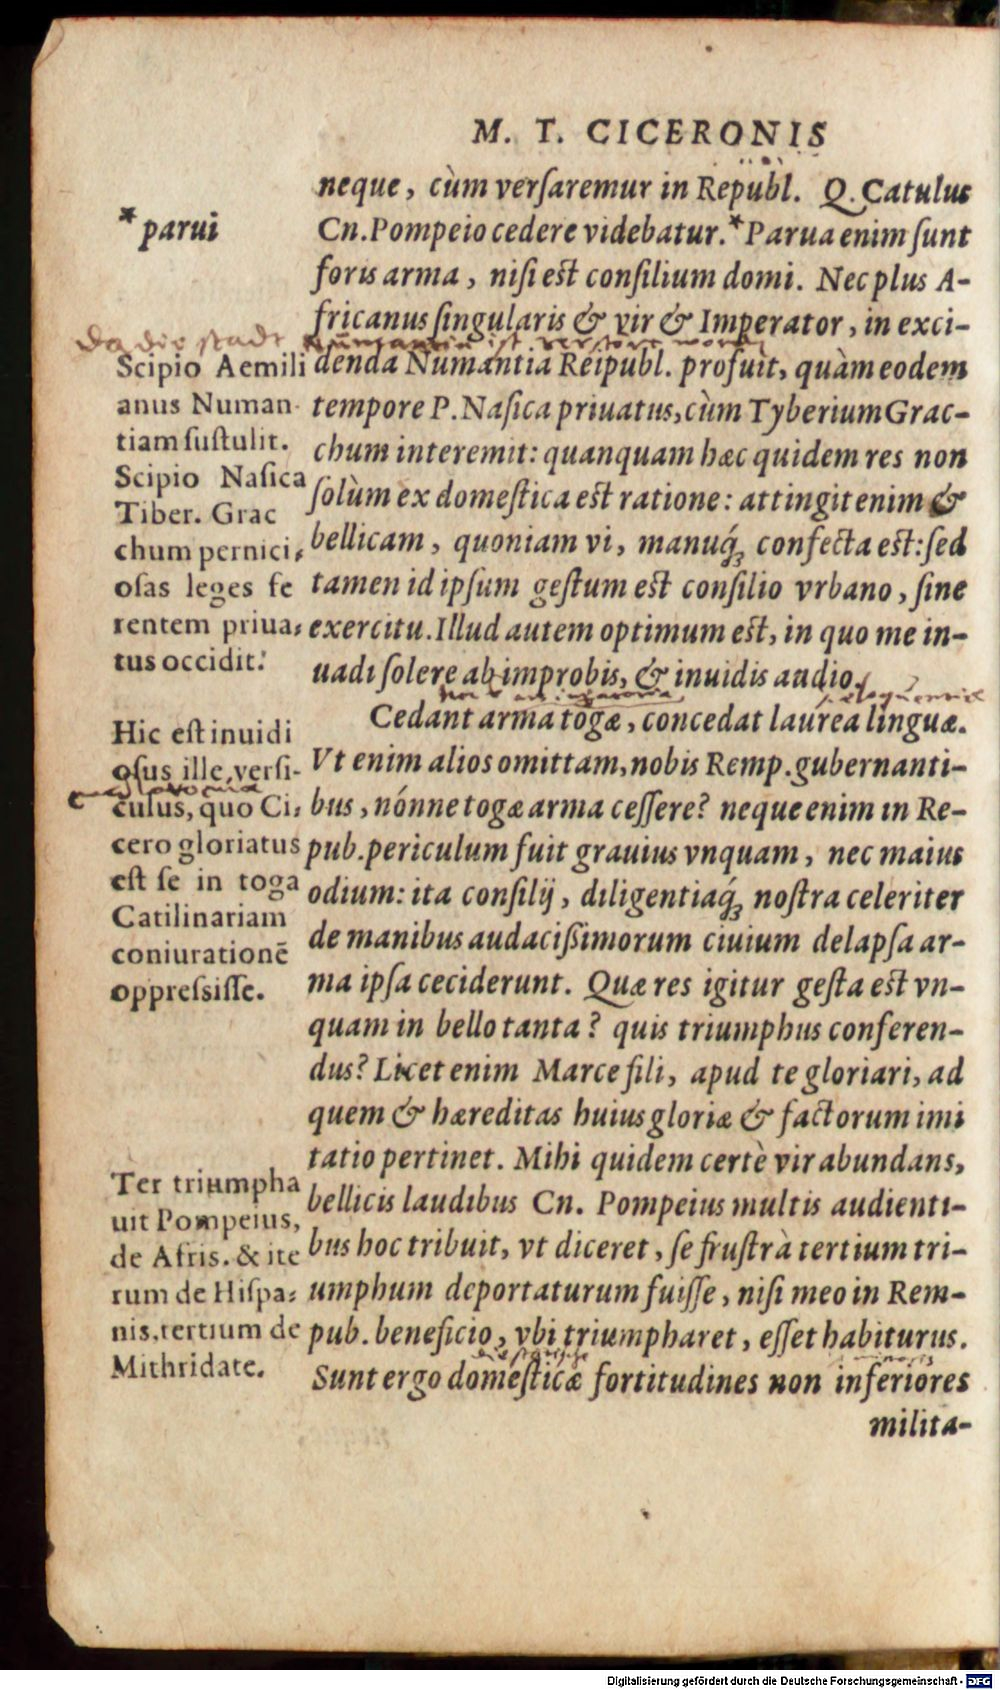 M. T. CICERONIS
neque, cùm verſaremur in Republ. Q. Catulus
Cn. Pompeio cedere videbatur. * Parua enim ſunt
foris arma, niſi eſt conſilium domi. Nec plus A-
fricanus ſingularis & vir & Imperator, in exci-
denda Numantia Reipubl. profuit, quàm eodem
tempore P. Naſica priuatus, cùm Tyberium Grac-
chum interemit: quanquam hæc quidem res non
ſolùm ex domeſtica eſt ratione: attingit enim &
bellicam, quoniam vi, manuq́ꝫ confecta eſt: ſed
tamen id ipſum geſtum eſt conſilio vrbano, ſine
exercitu. Illud autem optimum eſt, in quo me in-
uadi ſolere ab improbis, & inuidis audio.
Cedant arma togæ, concedat laurea linguæ.
Vt enim alios omittam, nobis Remp. gubernanti-
bus, nónne togæ arma ceſſere? neque enim in Re-
pub. periculum fuit grauius vnquam, nec maius
odium: ita conſilij, diligentiaq́ꝫ noſtra celeriter
de manibus audacißimorum ciuium delapſa ar-
ma ipſa ceciderunt. Quæ res igitur geſta eſt vn-
quam in bello tanta? quis triumphus conferen-
dus? Licet enim Marce fili, apud te gloriari, ad
quem & hæreditas huius gloriæ & factorum imi
tatio pertinet. Mihi quidem certè vir abundans,
bellicis laudibus Cn. Pompeius multis audienti-
bus hoc tribuit, vt diceret, ſe fruſtrà tertium tri-
umphum deportaturum fuiſſe, niſi meo in Rem-
pub. beneficio, vbi triumpharet, eſſet habiturus.
Sunt ergo domeſticæ fortitudines non inferiores
milita-
* parui
da die stadt Numantia ist
Scipio Aemili
anus Numan
tiam ſuſtulit.
Scipio Naſica
Tiber. Grac
chum pernici⸗
oſas leges fe
rentem priua⸗
tus occidit.
Hic eſt inuidi
oſus ille verſi-
culus, quo Ci⸗
cero gloriatus
eſt ſe in toga
Catilinariam
coniurationē
oppreſsiſſe.
Ter triumpha
uit Pompeius,
de Afris. & ite
rum de Hiſpa⸗
nis, tertium de
Mithridate.
Digitalisierung gefördert durch die Deutsche Forschungsgemeinschaft - DFG